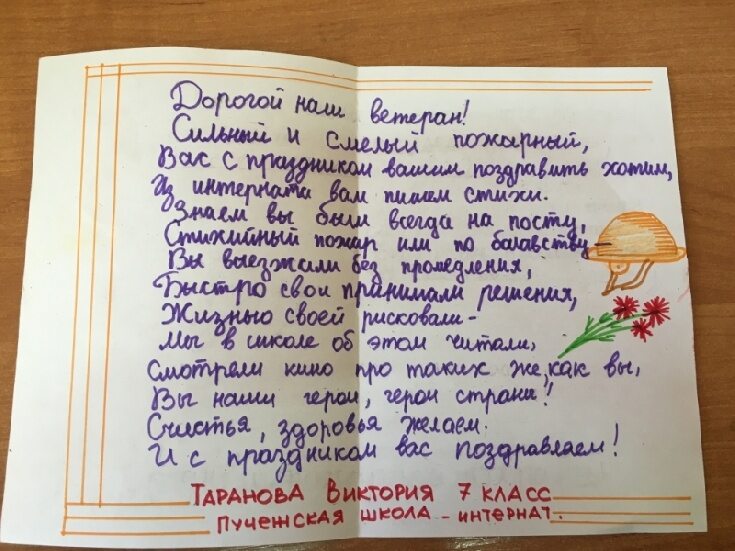 Дорогой наш ветеран!
Сильный и смелый пожарный,
Вас с праздником вашим поздравить хотим,
Из интерната вам пишем стихи.
Знаем вы были всегда на посту,
Стихийный пожар или по балавству –
Вы выезжали без промедления,
Быстро свои принимали решения,
Жизнью своей рисковали –
Мы в школе об этом читали,
Смотрели кино про таких же, как вы,
Вы наши герои, герои страны!
Счастья, здоровья желаем
И с праздником вас поздравляем!
Таранова Виктория 7 класс
Пучежская школа – интернат.